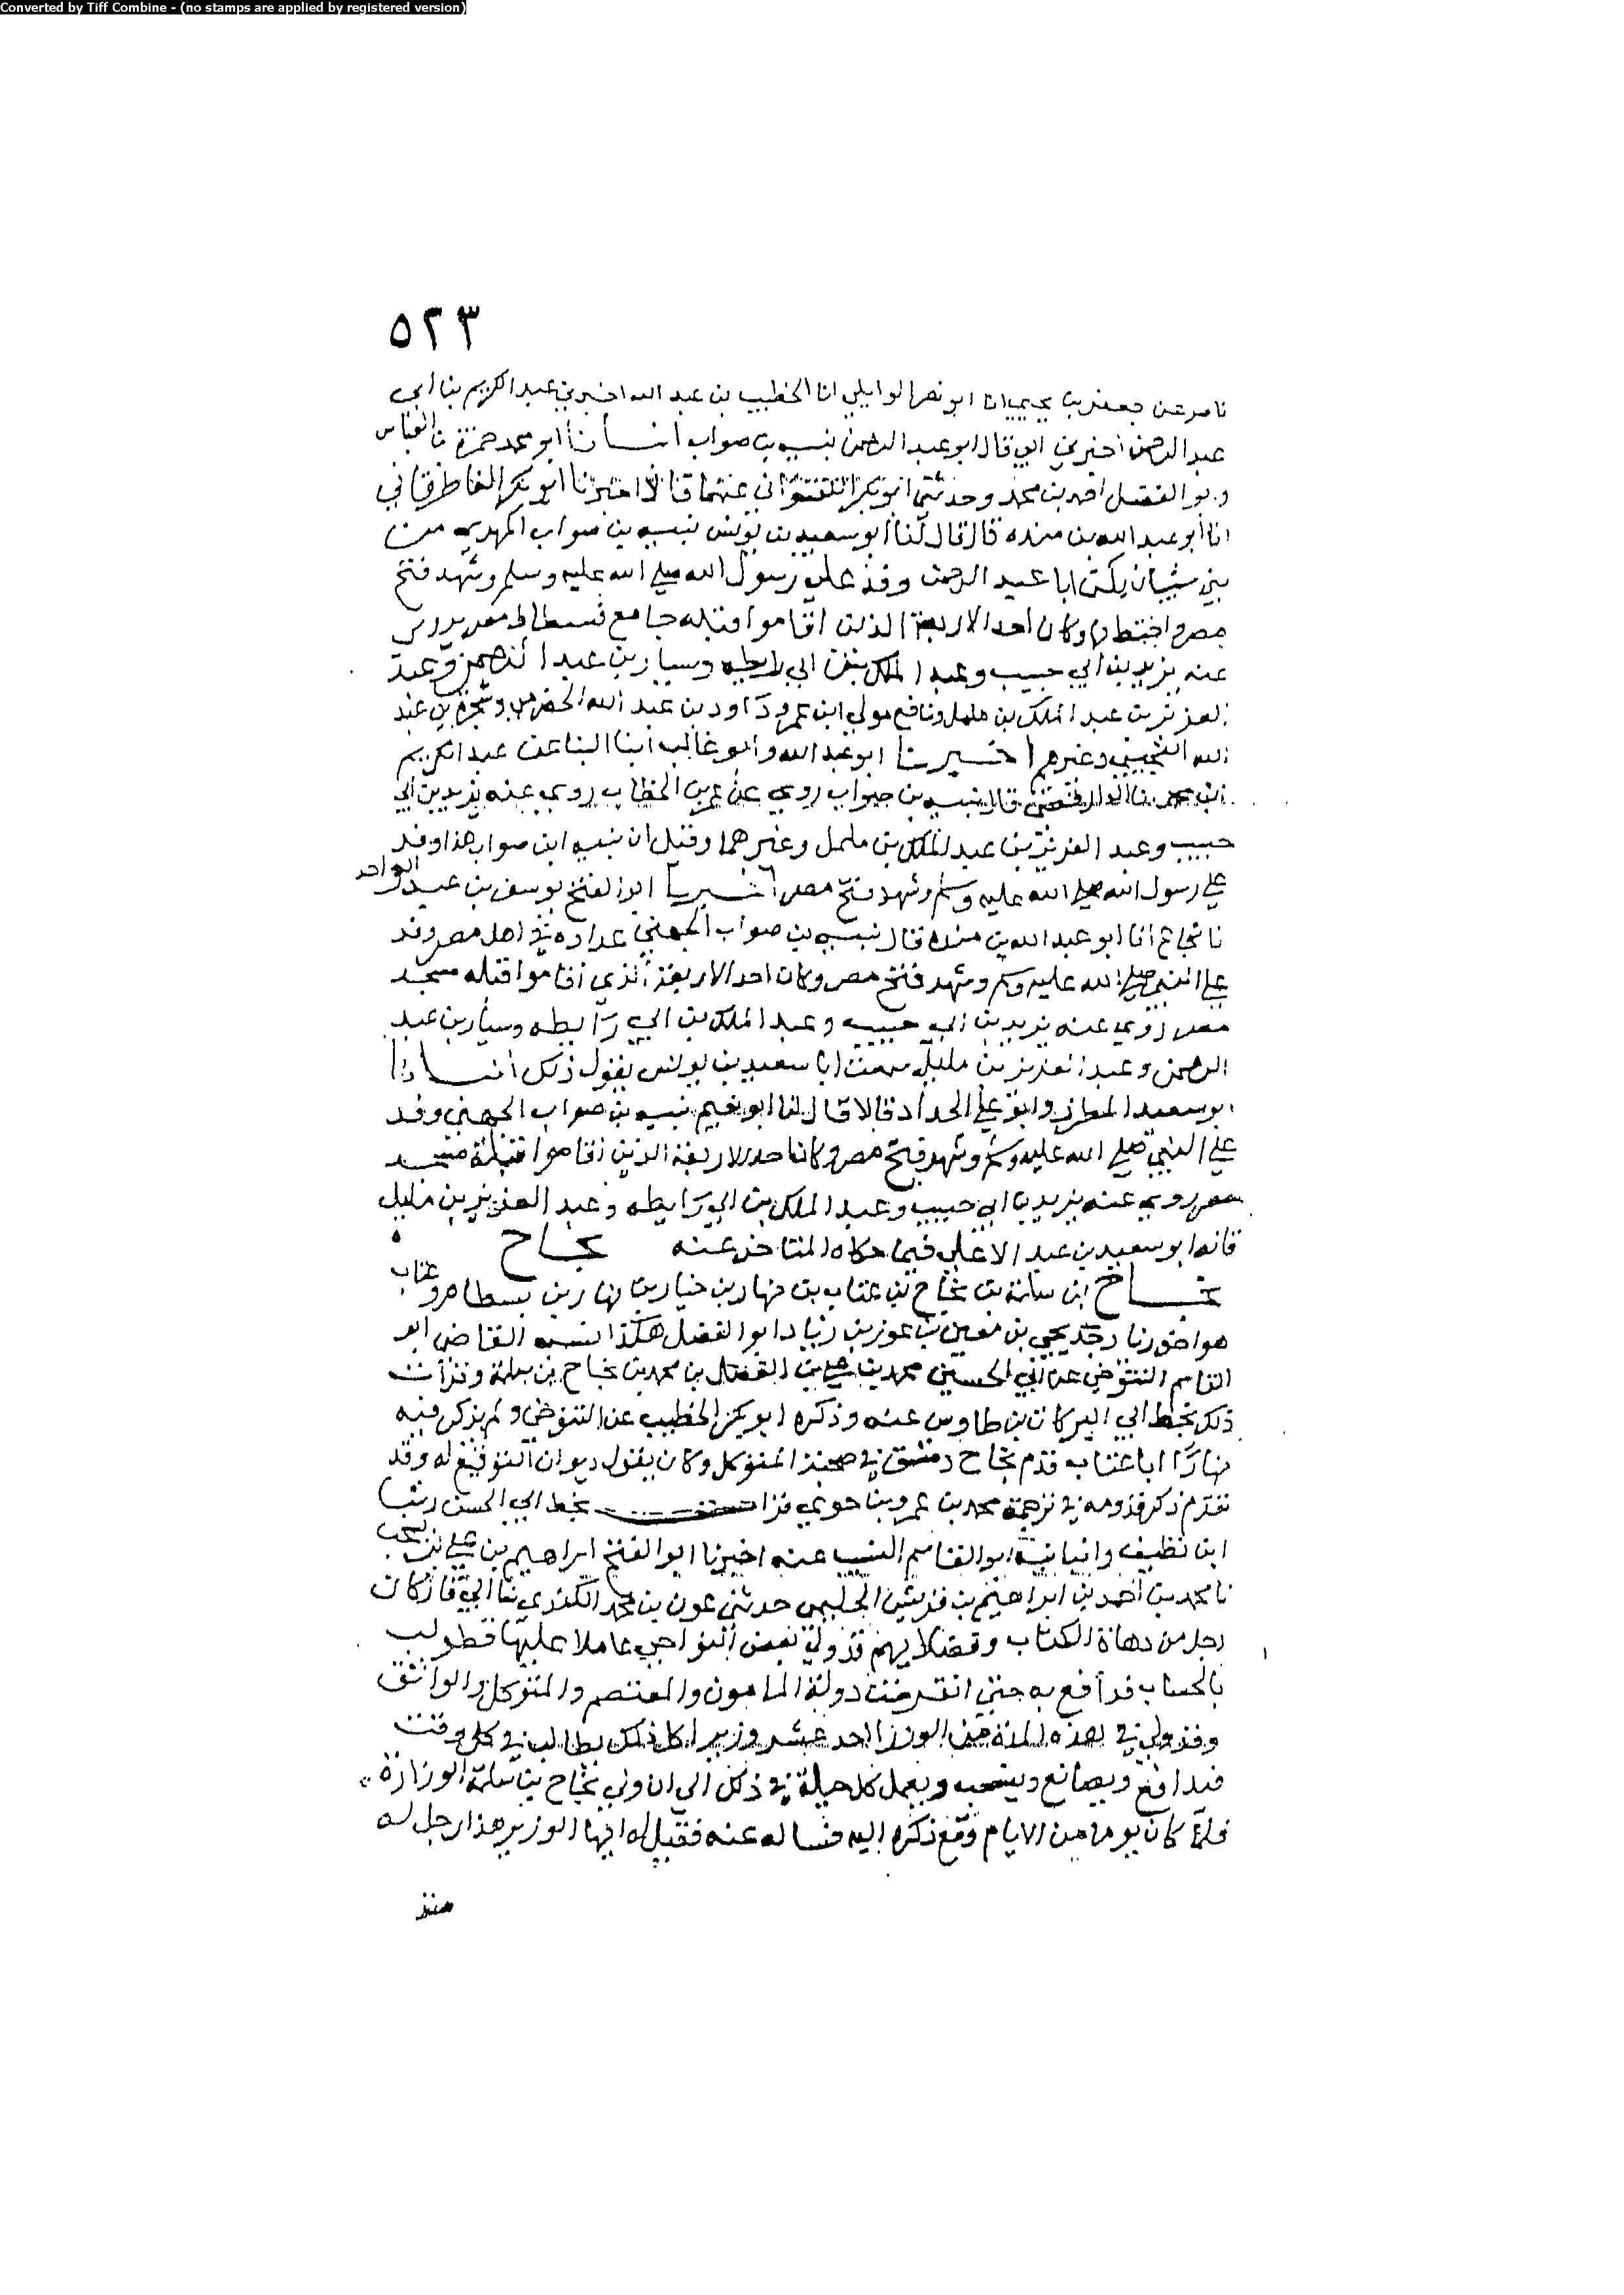 Converted by Tiff Combine - (no stamps are applied by registered version)
٥٢٣
ناصر عن جعفر بن يحيى انا ابو نصر الوايلي انا الخطيب بن عبد الله اخبرني عبد الكريم بن ابي
عبد الرحمن اخبرني ابي قال ابو عبد الرحمن نبيه بن صواب انبأنا ابو محمد حمزة بن العباس
وابو الفضل احمد بن محمد وحدثني ابو بكر اللفتواني عنهما قالا اخبرنا ابو بكر الباطرقاني
انا ابو عبد الله بن منده قال قال لنا ابو سعيد بن يونس نبيه بن صواب المهري من
بني شيبان يكنى ابا عبد الرحمن وفد على رسول الله صلى الله عليه وسلم وشهد فتح
مصر واختط بها وكان احد الاربعة الذين اقاموا قبلة جامع فسطاط مصر يروي
عنه يزيد بن ابي حبيب وعبد الملك بن ابي رايطه وسيار بن عبد الرحمن وعبد
العزيز بن عبد الملك بن مليل ونافع مولى ابن عمر وداود بن عبد الله الحضرمي وشجرة بن عبد
الله التجيبي وغيرهم اخبرنا ابو عبد الله وابو غالب ابنا البنا عن عبد الكريم
ابن محمد انا الدارقطني قال نبيه بن صواب روى عن عمر بن الخطاب روى عنه يزيد بن ابي
حبيب وعبد العزيز بن عبد الملك بن مليل وغيرهما وقيل ان نبيه ابن صواب هذا وفد
على رسول الله صلى الله عليه وسلم وشهد فتح مصر اخبرنا ابو الفتح يوسف بن عبد الواحد
نا شجاع انا ابو عبد الله بن منده قال نبيه بن صواب الجهني عداده في اهل مصر وفد
على النبي صلى الله عليه وسلم وشهد فتح مصر وكان احد الاربعة الذي اقاموا قبله مسجد
مصر روى عنه يزيد بن ابي حبيب وعبد الملك بن ابي رايطه وسيار بن عبد
الرحمن وعبد العزيز بن مليل سمعت ابا سعيد بن يونس يقول ذلك انبأنا
ابو سعيد المطرز وابو علي الحداد قالا قال لنا ابو نعيم نبيه بن صواب الجهني وفد
على النبي صلى الله عليه وسلم وشهد فتح مصر وكان احد الاربعة الذين اقاموا قبلة مسجد
مصر روى عنه يزيد بن ابي حبيب وعبد الملك بن ابي رايطه وعبد العزيز بن مليل
قاله ابو سعيد بن عبد الاعلى فيما حكاه المتاخر عنه نجاح
نجاح ابن سلمة بن نجاح بن عتاب بن نهار بن خيار بن نهار بن بسطام وعتاب
هو اخو زياد جد يحيى بن معين بن عون بن زياد ابو الفضل هكذا نسبه القاضي ابو
القاسم التنوخي عن ابي الحسين محمد بن علي بن الفضل بن محمد بن نجاح بن سلمة وقرأت
ذلك بخط ابي البركات بن طاوس عنه وذكره ابو بكر الخطيب عن التنوخي ولم يذكر فيه
نهارا ابا عتاب قدم نجاح دمشق في صحبة المتوكل وكان يتولى ديوان التوقيع له وقد
تقدم ذكر قدومه في ترجمة محمد بن عمرو بن حوي قرات بخط ابي الحسن رشا
ابن نظيف وانبانيه ابو القاسم النسيب عنه اخبرنا ابو الفتح ابراهيم بن علي
نا محمد بن احمد بن ابراهيم بن قريش الحليمي حدثني عون بن محمد الكندي نا ابي قال كان
رجل من دهاة الكتاب وفضلايهم قد ولي بعض النواحي عاملا عليها فطولب
بالحساب فدافع به حتى انقرضت دولة المامون والمعتصم والمتوكل والواثق
وقد ولي في هذه المدة من الوزرا احد عشر وزيرا كل ذلك يطالب في كل وقت
فيدافع ويصانع ويتسحب ويعمل كل حيلة في ذلك الى ان ولي نجاح بن سلمة الوزارة
فلما كان يوما من الايام وقع ذكره اليه فساله عنه فقيل له ايها الوزير هذا رجل له
منذ